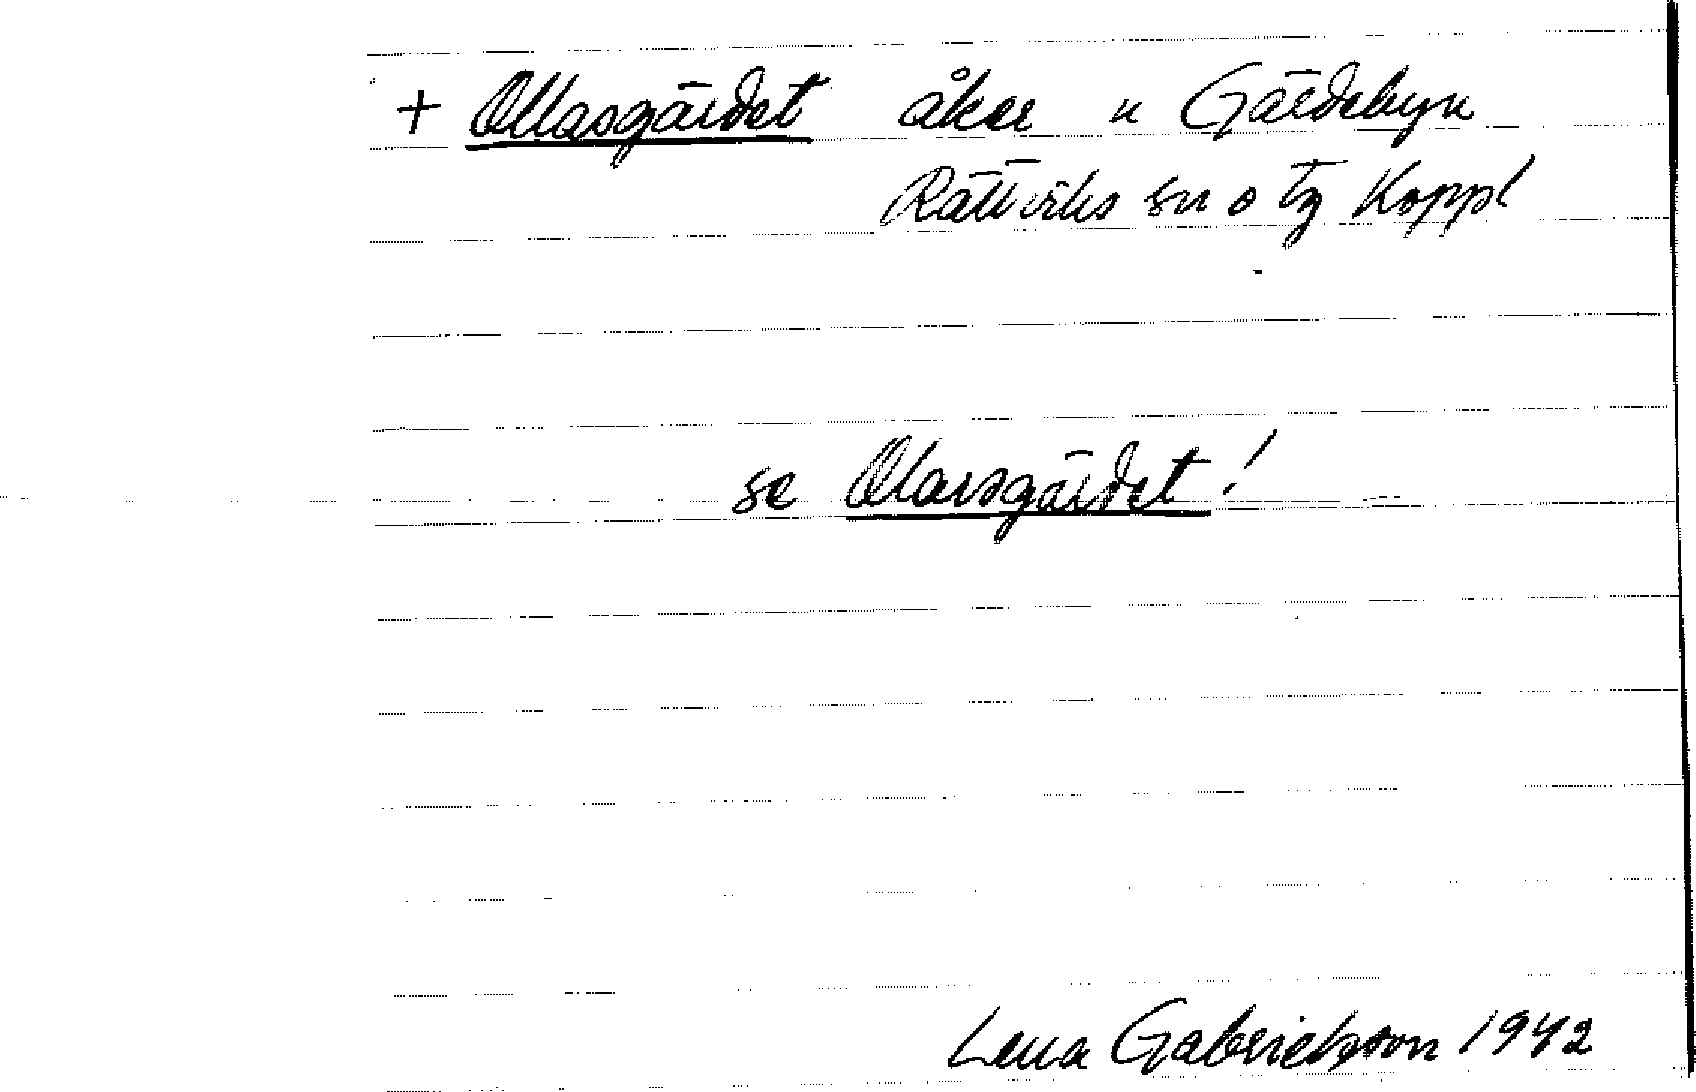 + Ollasgärdet åker n Gärdebyn
Rättviks sn o tg Koppl
se Olarsgärdet!
Lena Gabrielsson 1942